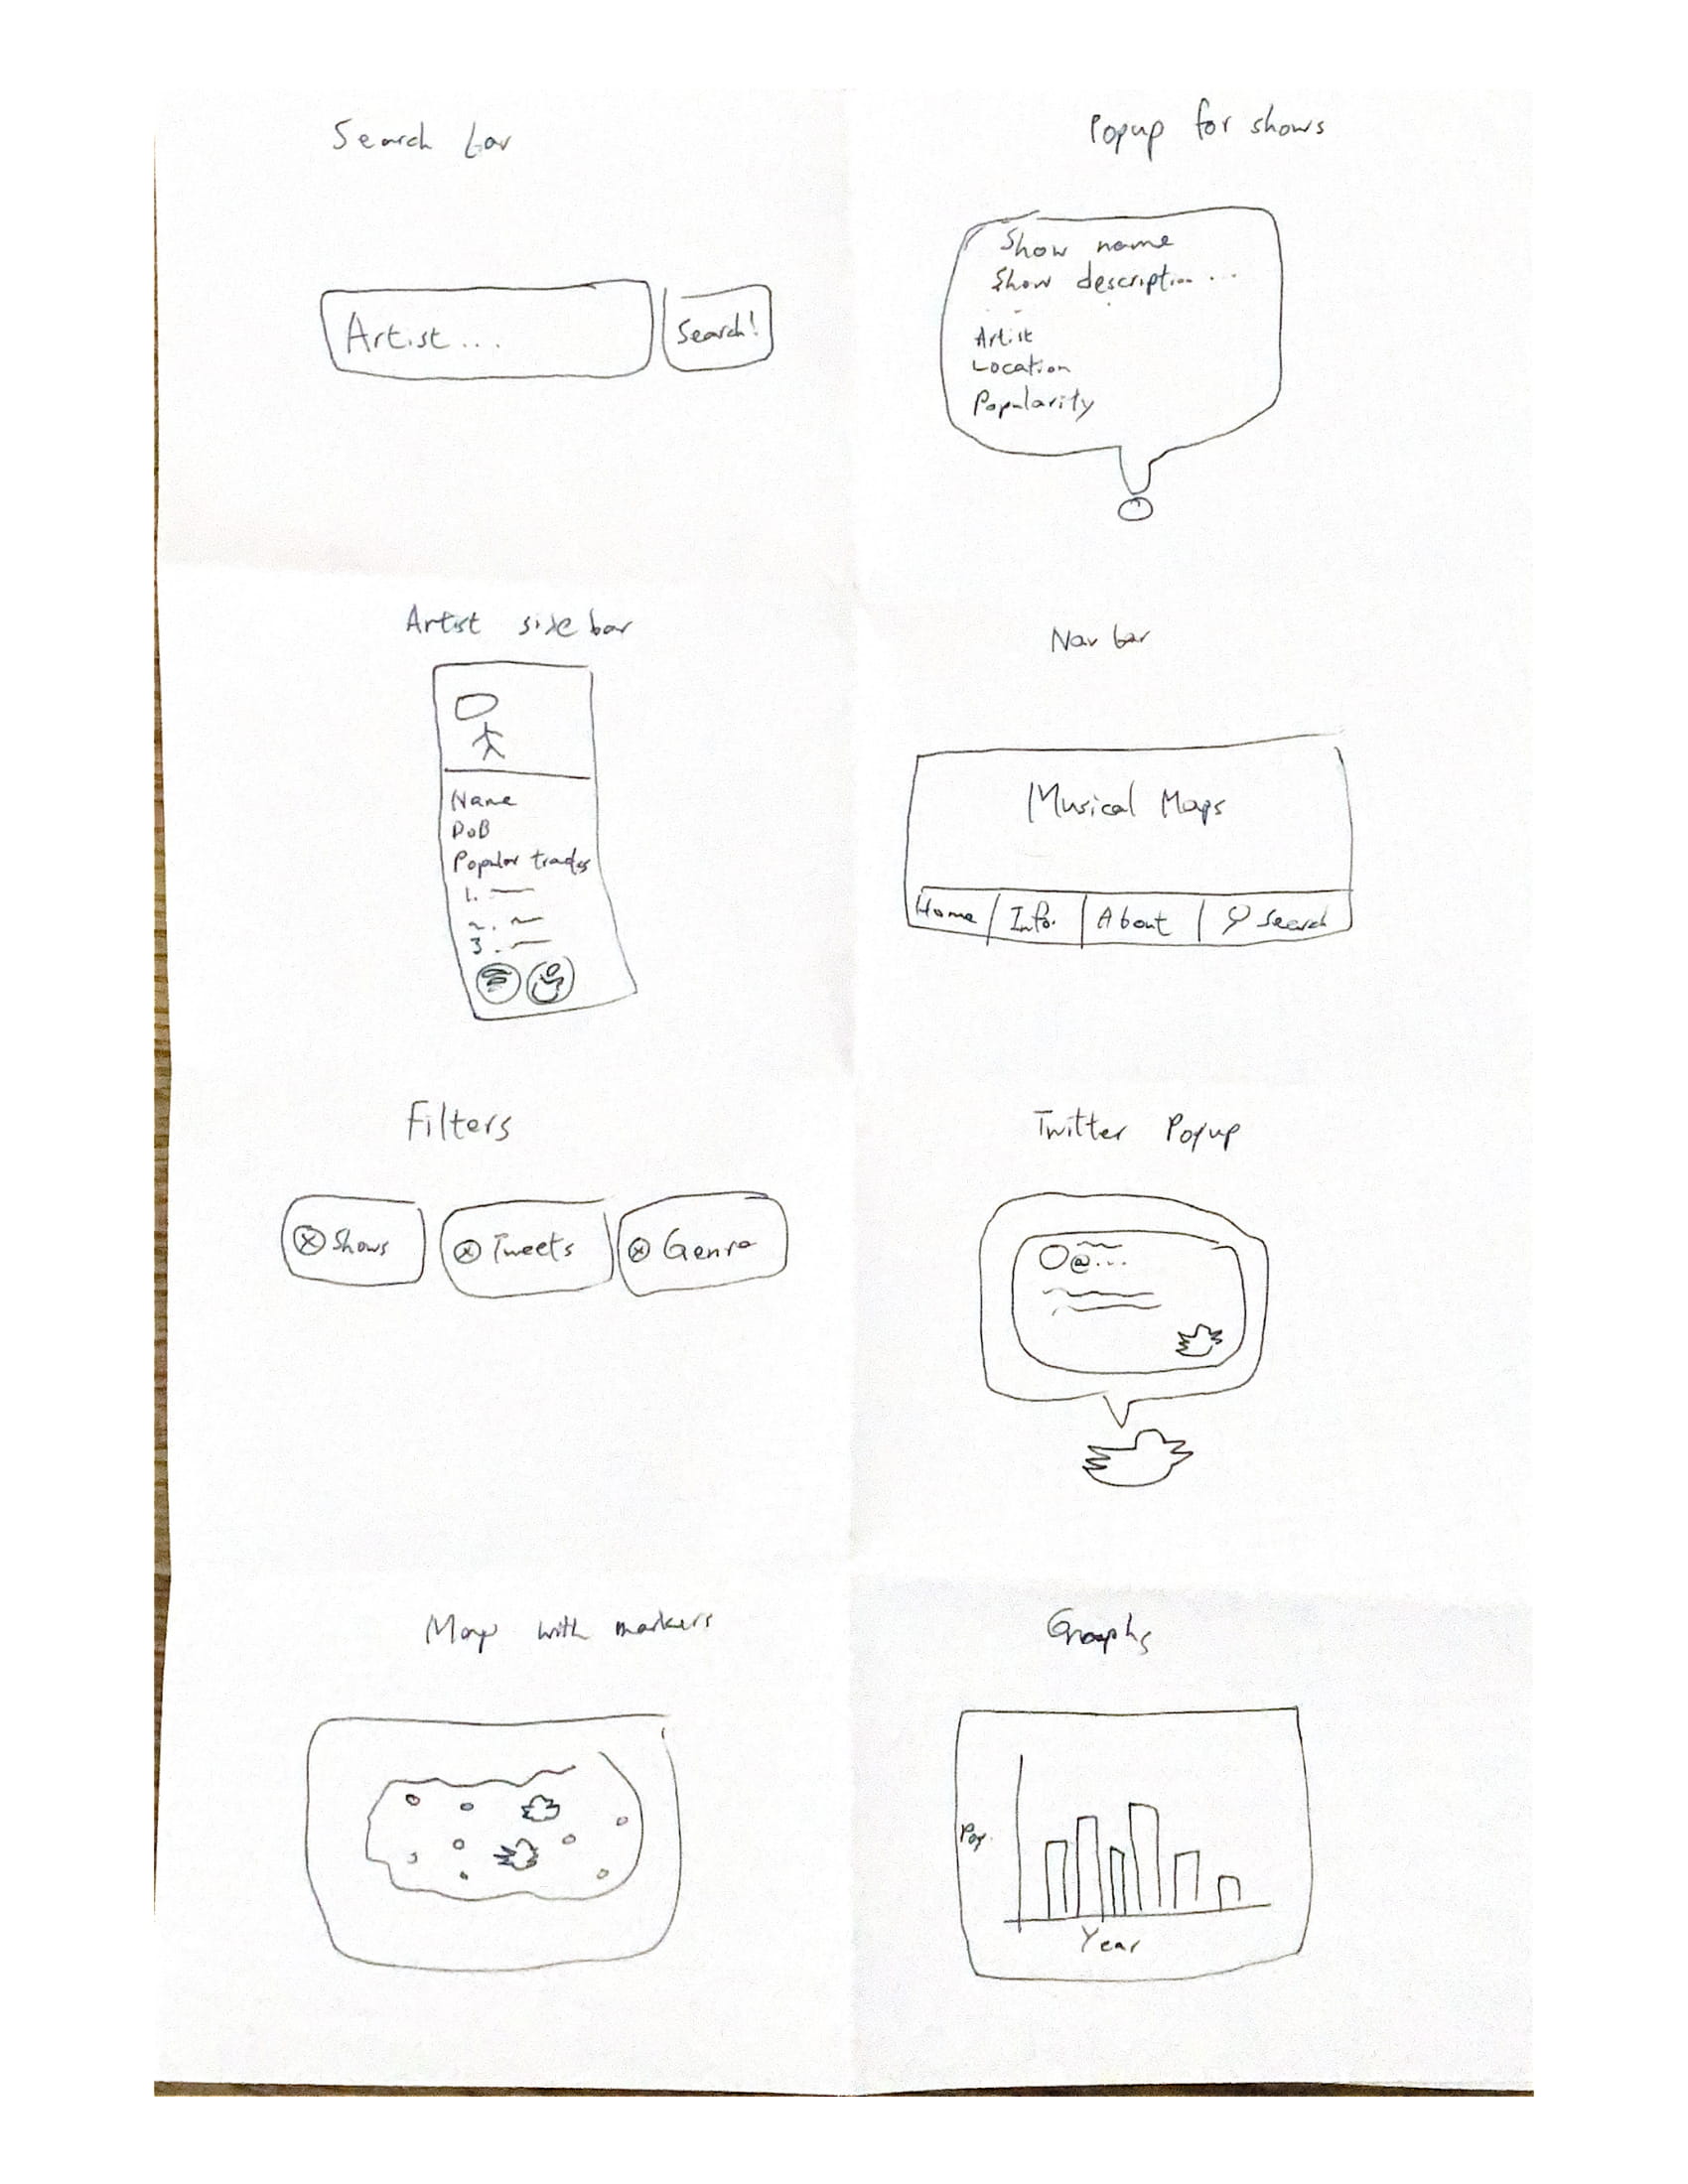 Search bar
Artist...
Search!
Popup for shows
Show name
Show description...
Artist
Location
Popularity
Artist sidebar
Name
DoB
Popular tracks
1.
2.
3.
Nav bar
Musical Maps
Home
Info.
About
Search
Filters
Shows
Tweets
Genre
Twitter Popup
@...
Map with markers
Graphs
Pop.
Year